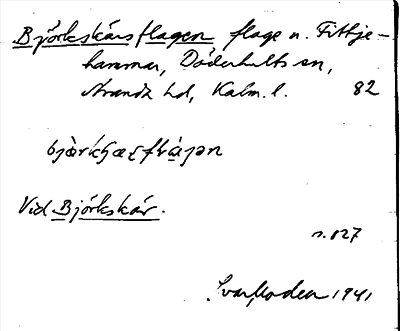 Björkskärsflagen flage n. Fittje-
hammar, Döderhults sn,
Stranda hd, Kalm. l. 82
Vid Björkskär.
s. 127
1941